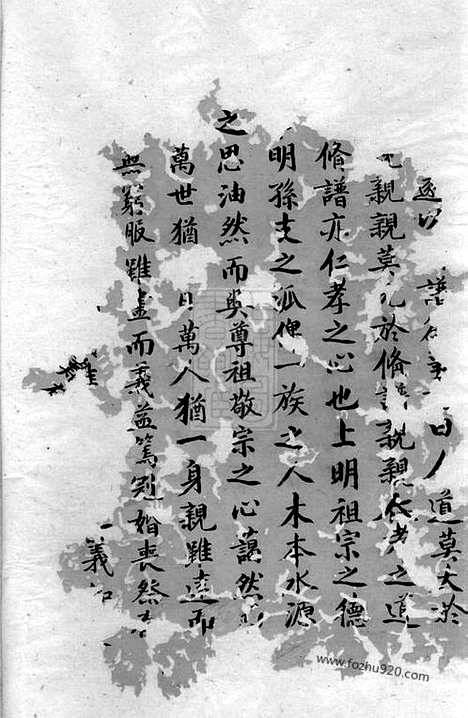 譜 曰人道莫大於
親親莫 於脩 親親 孝之道
脩譜亦仁孝之心也上明祖宗之德
明孫支之派俾一族之人木本水源
之思油然而興尊祖敬宗之心藹然
萬世猶 日萬人猶一身親雖遠而
無窮服雖盡而義益篤冠婚喪祭
義
www.fozhu920.com